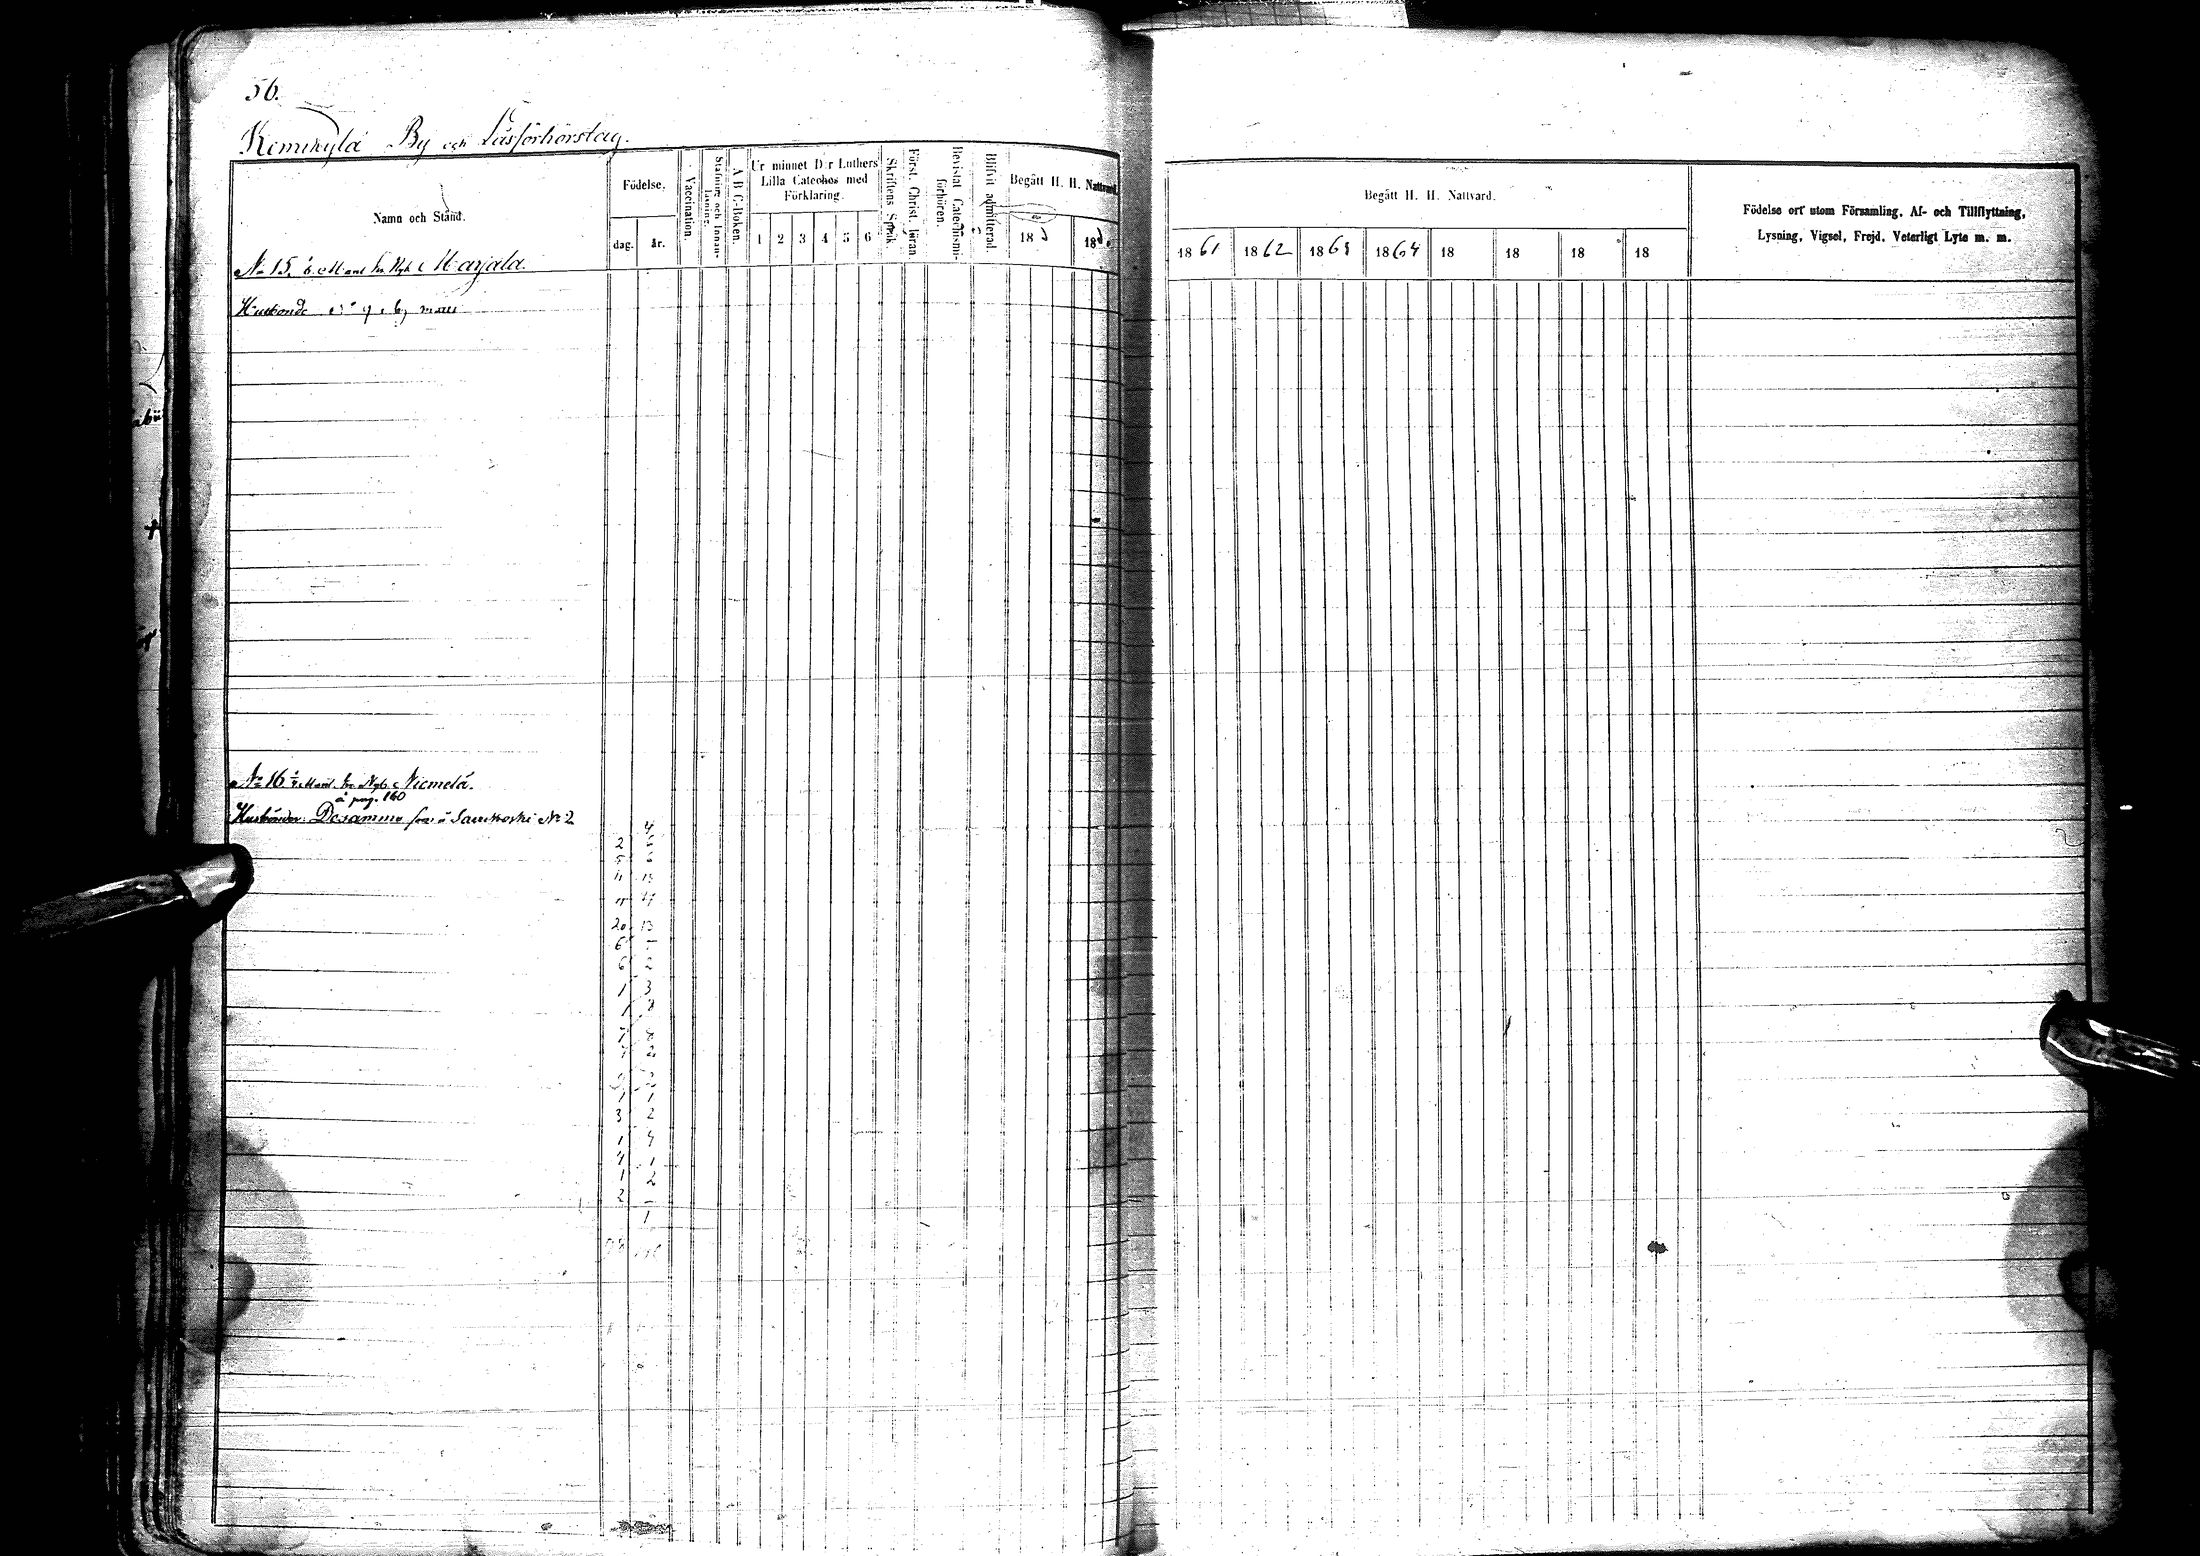 56.
Kemikylä By och Läsförhörslag.
Namn och Stånd.
Födelse.
dag. år.
Vaccination.
Stafning och Innan-
läsning.
A B C-Boken.
Ur minnet D:r Luthers
Lilla Cateches med
Förklaring.
1 2 3 4 5 6
Skriftens Språk.
Först. Christ. läran
Bevistat Catechismi-
förhören.
Blifvit admitterad.
Begått H. H. Nattvard.
18 18
Begått H. H. Nattvard.
1861 1862 1863 1864 18 18 18 18
Födelse ort utom Församling, Af- och Tillflyttning,
Lysning, Vigsel, Frejd, Veterligt Lyte m. m.
No 15, Marjala.
Husbonde
No 16 Niemelä.
å pag. 160
Husbönder: Desamme som å No 2
4
2 5
5 6
11 13
11 4
20 13
6 –
6 2
1 3
1 8
7 8
7 2
1 1
3 2
1 4
4 1
1 2
2 –
1